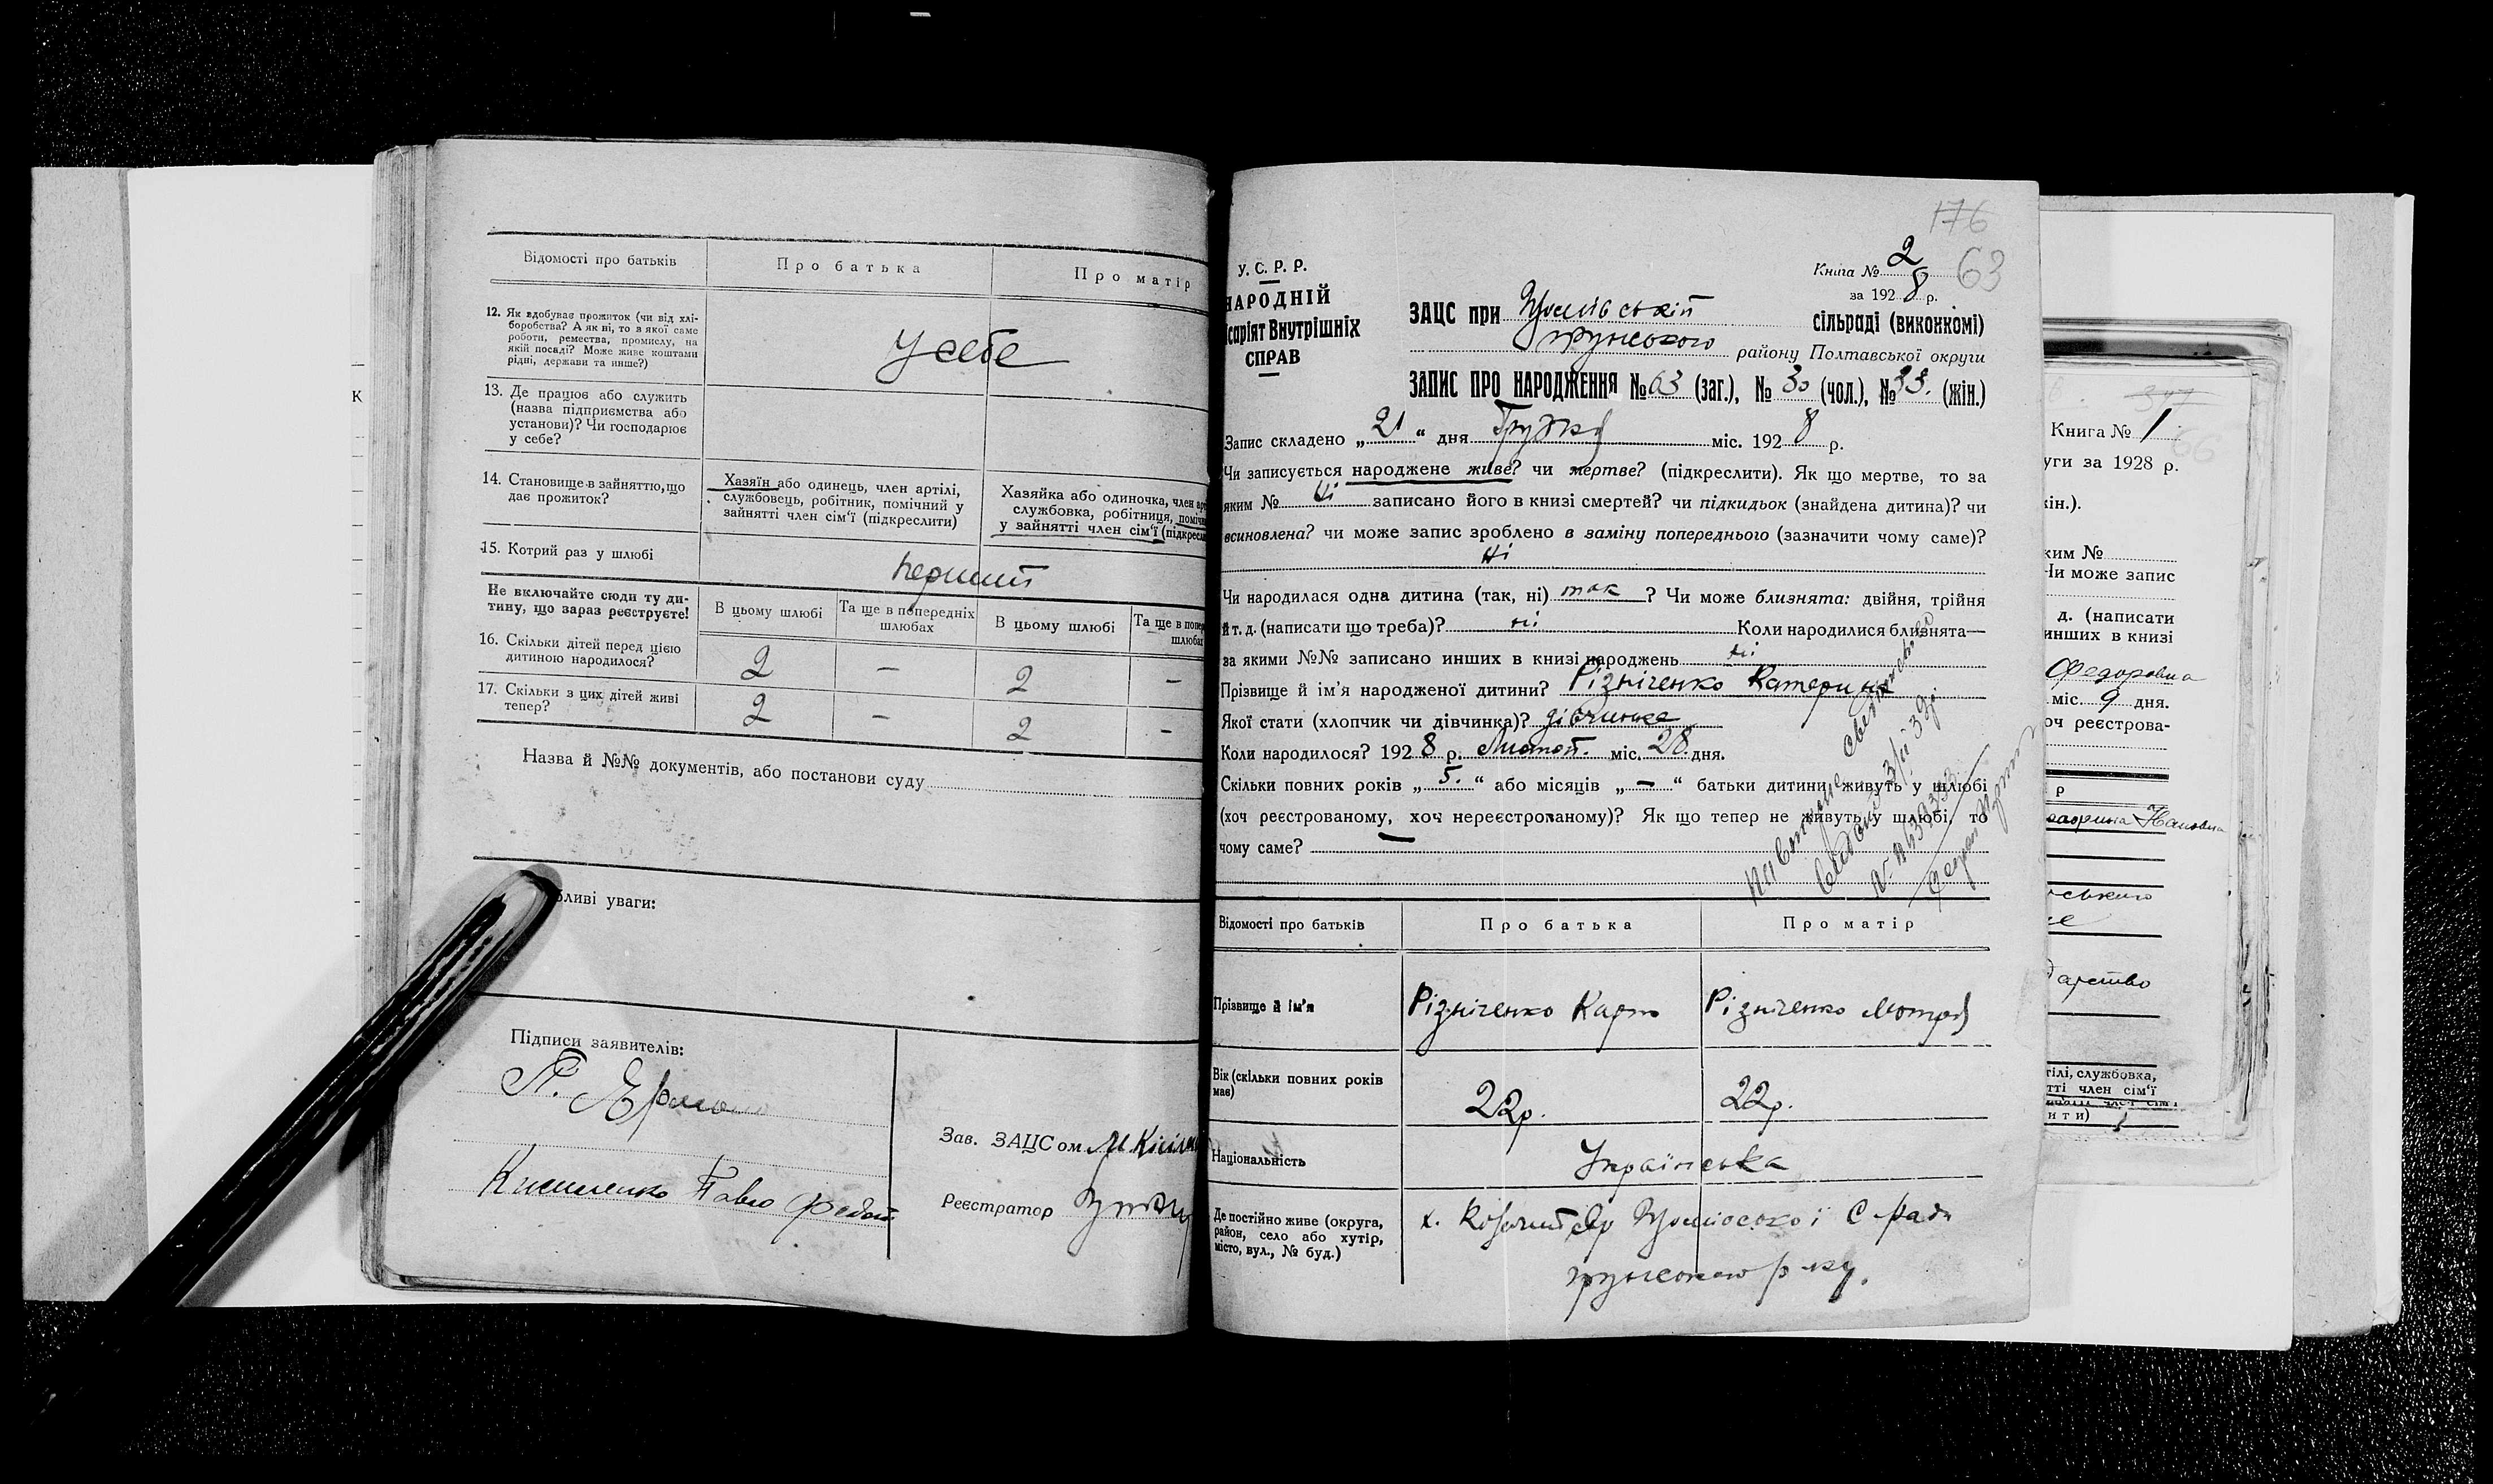 Відомості про батьків
Про батька
Про матір
12. Як здобуває прожиток (чи від хлі-
боробства? А як ні, то з якої саме
роботи, ремества, промислу, на
якій посаді? Може живе коштами
рідні, держави та инше?)
У себе
13. Де працює або служить
(назва підприємства або
установи)? Чи господарює
у себе?
14. Становище в зайняттю, що
дає прожиток?
Хазяїн або одинець, член артілі,
службовець, робітник, помічний у
зайнятті член сім'ї (підкреслити)
Хазяйка або одиночка, член
службовка, робітниця,
у зайнятті член сім'ї
15. Котрий раз у шлюбі
перший
Не включайте сюди ту ди-
тину, що зараз реєструєте!
В цьому шлюбі
Та ще в попередніх
шлюбах
В цьому шлюбі
Та ще в
шлюбах
16. Скільки дітей перед цією
дитиною народилося?
2 – 2 –
17. Скільки з цих дітей живі
тепер?
2 – 2 –
Назва й №№ документів, або постанови суду
уваги:
Підписи заявителів:
Павло
Зав. ЗАЦСом
Реєстратор
176
63
У. С. Р. Р.
НАРОДНІЙ
Внутрішніх
СПРАВ
Книга № 2
за 1928 р.
ЗАЦС при
сільраді (виконкомі)
грунського району Полтавської округи
ЗАПИС ПРО НАРОДЖЕННЯ № 63 (заг.), № 30 (чол.), № 33. (жін.)
Запис складено „21“ дня Грудня міс. 1928 р.
Чи записується народжене живе? чи мертве? (підкреслити). Як що мертве, то за
яким № ні записано його в книзі смертей? чи підкидьок (знайдена дитина)? чи
всиновлена? чи може запис зроблено в заміну попереднього (зазначити чому саме)?
ні
Чи народилася одна дитина (так, ні) так? Чи може близнята: двійня, трійня
й т. д. (написати що треба)? ні Коли народилися близнята—
за якими №№ записано инших в книзі народжень ні
Прізвище й ім'я народженої дитини? Різніченко Катерина
Якої стати (хлопчик чи дівчинка)? дівчинка
Коли народилося? 1928 р. Листоп. міс. 28 дня.
Скільки повних років „5.“ або місяців „–“ батьки дитини живуть у шлюбі
(хоч реєстрованому, хоч нереєстрованому)? Як що тепер не живуть у шлюбі, то
чому саме?
Відомості про батьків
Про батька
Про матір
Прізвище й ім'я
Різніченко Карпо
Різніченко Мотря
Вік (скільки повних років
має)
22р.
22р.
Національність
Українська
Де постійно живе (округа,
район, село або хутір,
місто, вул., № буд.)
грунського р-ну.
Книга № 1
за 1928 р.
Федоровна
міс. 9 дня.
Чи може запис
(написати
инших в книзі
службовка,
член сім'ї